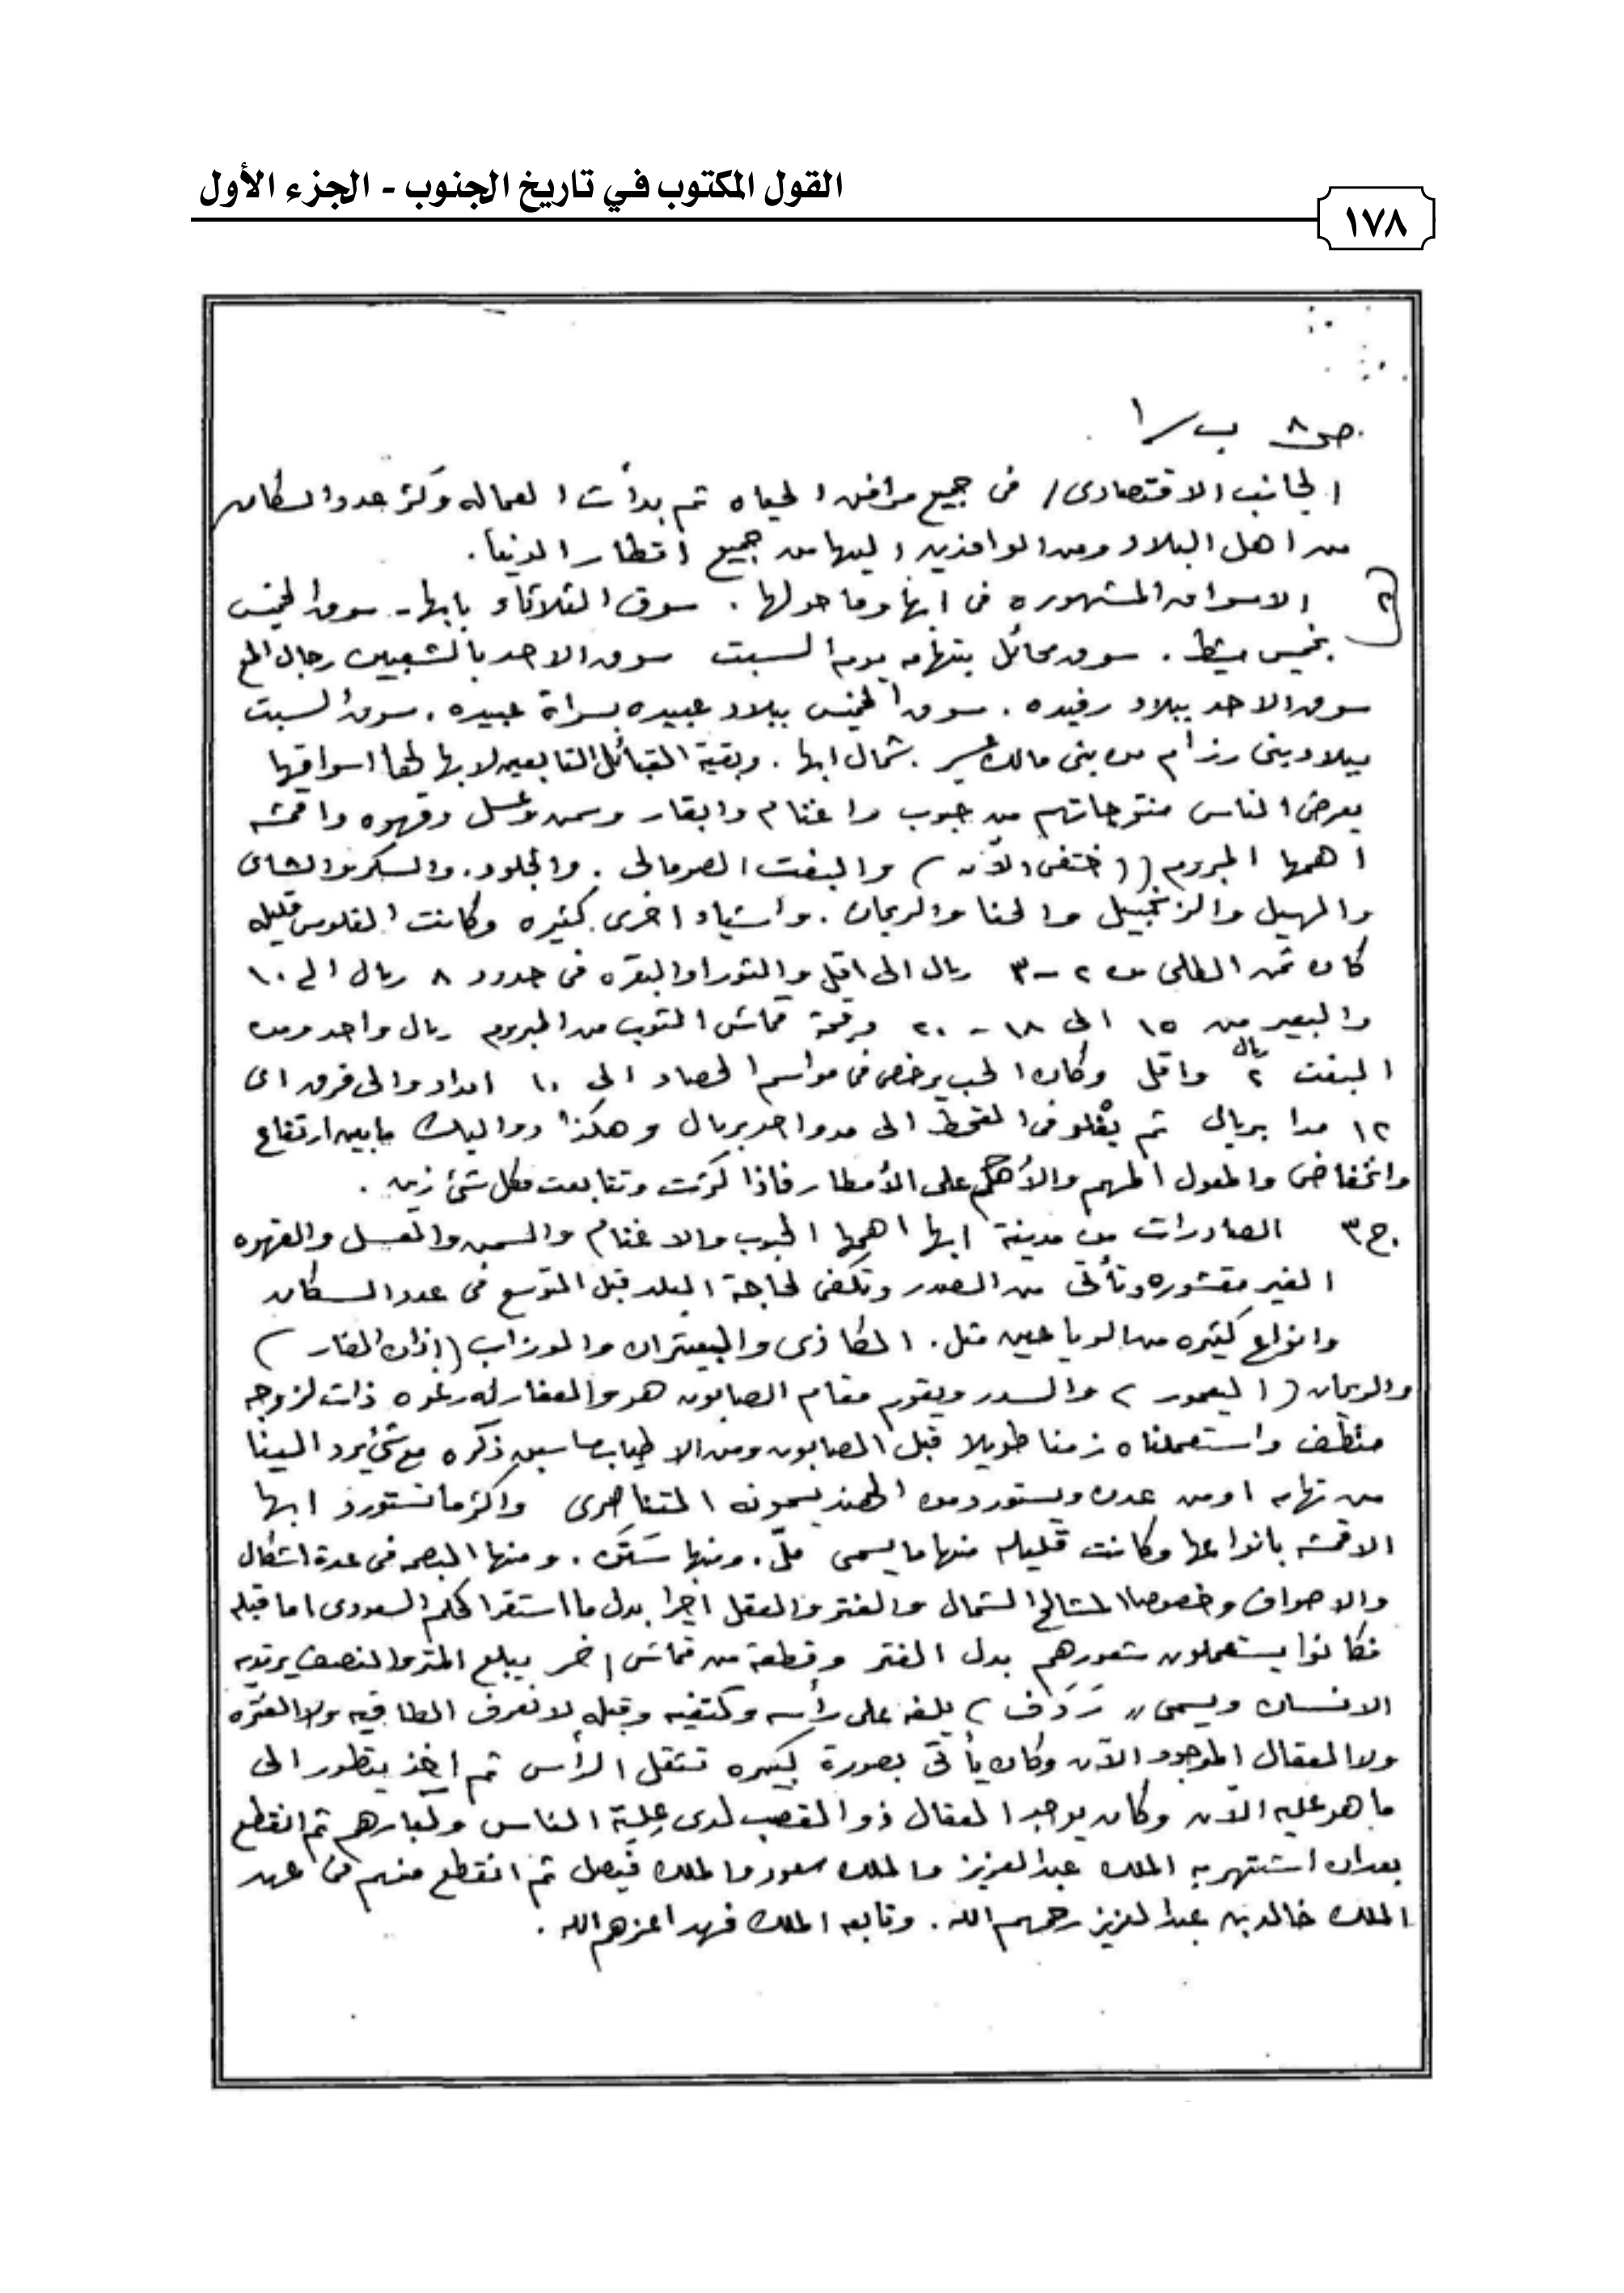 القول المكتوب في تاريخ الجنوب - الجزء الأول
١٧٨
ص ٨ ب/ ١
الجانب الاقتصادى / فى جميع مرافق الحياه ثم بدأت العماله وكثر عدد السكان
من اهل البلاد ومن الوافدين اليها من جميع اقطار الدنيا .
الاسواق المشهوره فى ابها وما حولها . سوق الثلاثاء بابها - سوق الخميس
بخميس مشيط . سوق محائل بتهامه يوم السبت سوق الاحد بالشعبين رجال المع
سوق الاحد ببلاد رفيده . سوق الخميس ببلاد عبيده بسراة عبيده . سوق السبت
ببلاد بنى رزام من بنى مالك عسير . شمال ابها . وبقية القبائل التابعين لابها لها اسواقها
يعرض الناس منتوجاتهم من حبوب واغنام وابقار وسمن وعسل وقهوه واقمشه
اهمها المبروم (( ختفى الآن ) والبفت الصومالى . والجلود . والسكر والشاى
والهيل والزنجبيل والحنا والريحان . واشياء اخرى كثيره وكانت الفلوس قليله
كان ثمن الطلى من ٢ - ٣ ريال الى اقل والثور اوالبقره فى حدود ٨ ريال الى ١٠
والبعير من ١٥ الى ١٨ - ٢٠ وقيمة قماش الثوب من المبروم ريال واحد ومن
البفت ٢ ريال واقل وكان الحب يرخص فى مواسم الحصاد الى ١٠ امداد والى فرق اى
١٢ مدا بريال ثم يغلو فى القحط الى مد واحد بريال وهكذا دواليك ما بين ارتفاع
وانخفاض والمعول المهم والأهم على الأمطار فاذا كثرت وتتابعت فكل شئ زين .
ج ٣ الصادرات من مدينة ابها اهمها الحبوب والاغنام والسمن والعسل والقهوه
الغير مقشوره وتأتى من الصدر وتكفى لحاجة البلد قبل التوسع فى عدد السكان
وانواع كثيره من الرياحين مثل . الكاذى والبعيثران والوزاب ( اذان الفار )
والريحان ( اليعمور ) والسدر ويقوم مقام الصابون هو والعفار له رغوه ذات لزوجه
منظف واستعملناه زمنا طويلا قبل الصابون ومن الاطياب ما سبق ذكره مع شئ يرد الينا
من تهامه اومن عدن ويستورد من الهند يسمونه المتناصرى واكثر ما تستورد ابها
الاقمشه بانواعها وكانت قليله منها ما يسمى ملّ . ومنها سَتَن . ومنها البصم فى عدة اشكال
والاصواف وخصوصا المشالح الشمال والغتر والعقل اخيرا بدل ما استقر الحكم السعودى اما قبله
فكانوا يستعملون شعورهم بدل الغتر وقطعة من قماش اخر يبلغ المتر والنصف يرتديه
الانسان ويسمى (( رَدَف ) يلفه على رأسه وكتفيه وقبله لا نعرف الطاقيه ولا الغتره
ولا العقال الموجود الآن وكان يأتى بصورة كبيره تثقل الرأس ثم اخذ يتطور الى
ما هو عليه الآن وكان يوجد العقال ذو القصب لدى عِلية الناس وكبارهم ثم انقطع
بعدان اشتهر به الملك عبدالعزيز والملك سعود والملك فيصل ثم انقطع منهم فى عهد
الملك خالد بن عبدالعزيز رحمهم الله . وتابعه الملك فهد اعزهم الله .